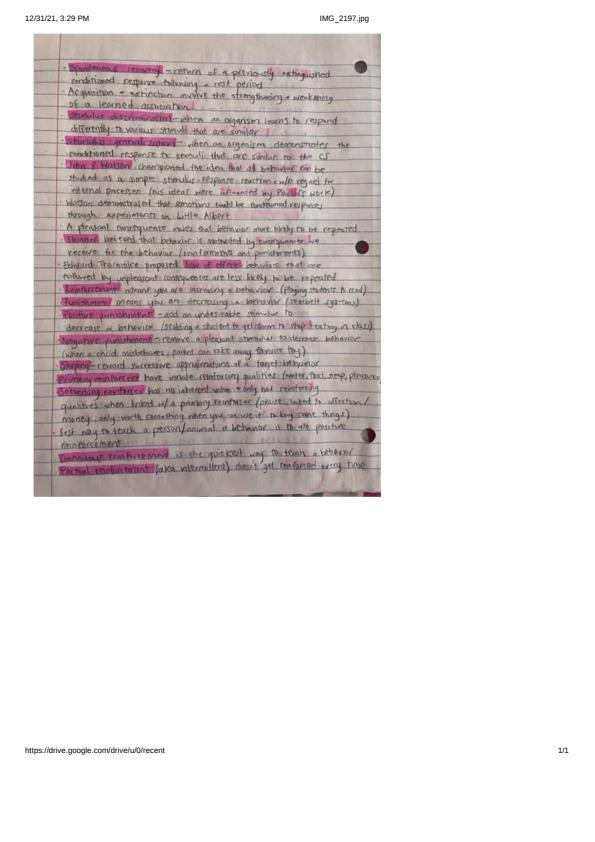 12/31/21, 3:29 PM
IMG_2197.jpg
· Spontaneous recovery - return of a previously extinguished
conditioned response following a rest period
· Acquisition + extinction involve the strengthening + weakening
of a learned association
· Stimulus discrimination - when an organism learns to respond
differently to various stimuli that are similar
· Stimulus generalization - when an organism demonstrates the
conditioned response to stimuli that are similar to the CS
· John B. Watson championed the idea that all behavior can be
studied as a simple stimulus-response reaction w/o regard for
internal processes (his ideas were influenced by Pavlov's work)
· Watson demonstrated that emotions could be conditioned responses
through experiments on Little Albert
· A pleasant consequence makes that behavior more likely to be repeated
· Skinner believed that behavior is motivated by consequences we
receive for the behavior (reinforcements and punishments)
· Edward Thorndike proposed law of effect: behaviors that are
followed by unpleasant consequences are less likely to be repeated
· Reinforcement means you are increasing a behavior (paying students to read)
· Punishment means you are decreasing a behavior (seatbelt systems)
· Positive punishment - add an undesirable stimulus to
decrease a behavior (scolding a student to get them to stop texting in class)
· Negative punishment - remove a pleasant stimulus to decrease behavior
(when a child misbehaves, parent can take away favorite toy)
· Shaping - reward successive approximations of a target behavior
· Primary reinforcers have innate reinforcing qualities (water, food, sleep, pleasure
· Secondary reinforcer has no inherent value + only has reinforcing
qualities when linked w/ a primary reinforcer (praise linked to affection /
money, only worth something when you can use it to buy some things)
· Best way to teach a person/animal a behavior is to use positive
reinforcement
· Continuous reinforcement is the quickest way to teach a behavior
· Partial reinforcement (aka intermittent) doesn't get reinforced every time
https://drive.google.com/drive/u/0/recent
1/1